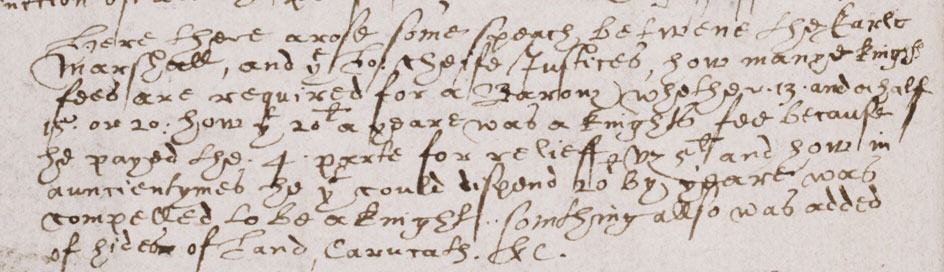 Here there arose some speach betwene the Earle
Marshall, and yͤ Lo: cheife Justices, how manye knights
fees are required for a Baron, whether .13. and a half
15. or 20. how yͭ 20ˡ a yeare was a knights fee because
he payed the .4. parte for relieff, vz 5ˡ and how in
auncientymes he yͭ could dispend 20ˡ by yeare was
compelled to be a knight. somthing allso was added
of hides of Land, Carucath. &c.